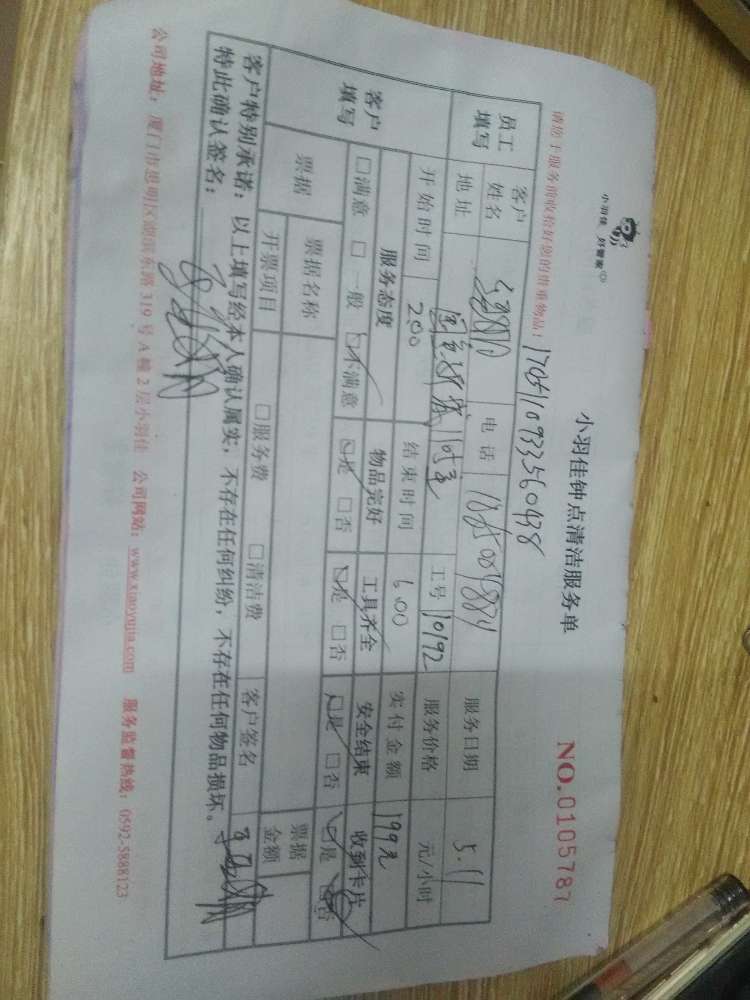 小羽佳 好管家
小羽佳钟点清洁服务单
NO.0105787
请您于服务前收检好您的贵重物品！
员工填写 客户姓名 电话 服务日期 5.11
地址 工号 10192 服务价格 元/小时
开始时间 2.00 结束时间 6.00 实付金额 199元
客户填写 服务态度 物品完好 工具齐全 安全结束 收到卡片
□满意 □一般 □不满意 □是 □否 □是 □否 □是 □否 □是 □否
票据 票据名称 票据金额
开票项目 □服务费 □清洁费 客户签名
客户特别承诺：以上填写经本人确认属实，不存在任何纠纷，不存在任何物品损坏。
特此确认签名：
公司地址：厦门市思明区湖滨东路319号A幢2层小羽佳 公司网站：www.xiaoyujia.com 服务监督热线：0592-5888123